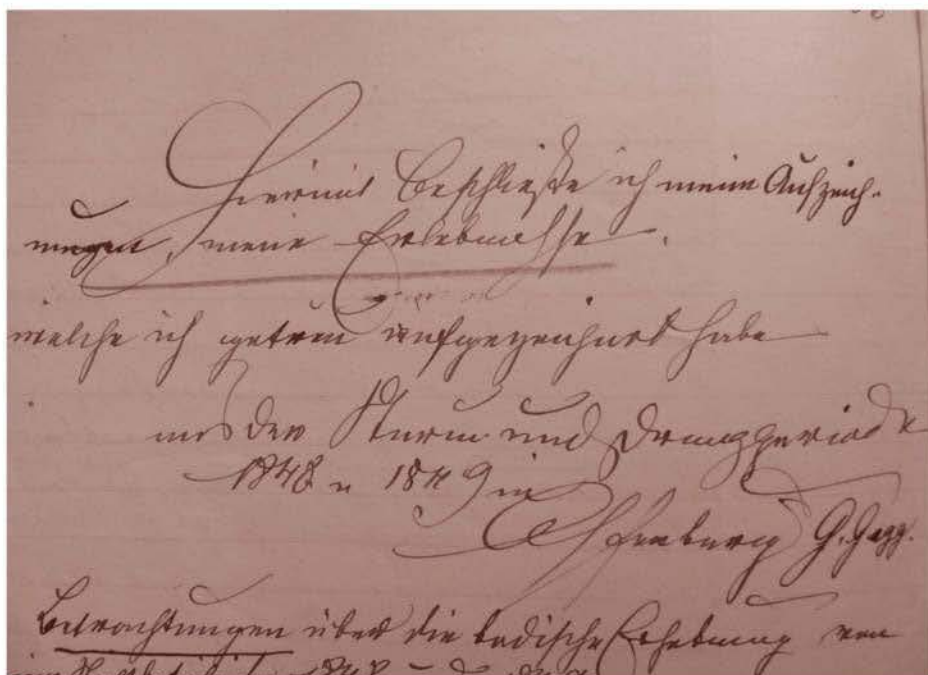 Hiermit beschließe ich meine Aufzeich-
nungen, meine Erlebnisse.
welche ich getreu aufgezeichnet habe
aus der Sturm und Drangperiode
1848 u 1849 in
Offenburg G. Gagg.
Betrachtungen über die badische Erhebung von
1848